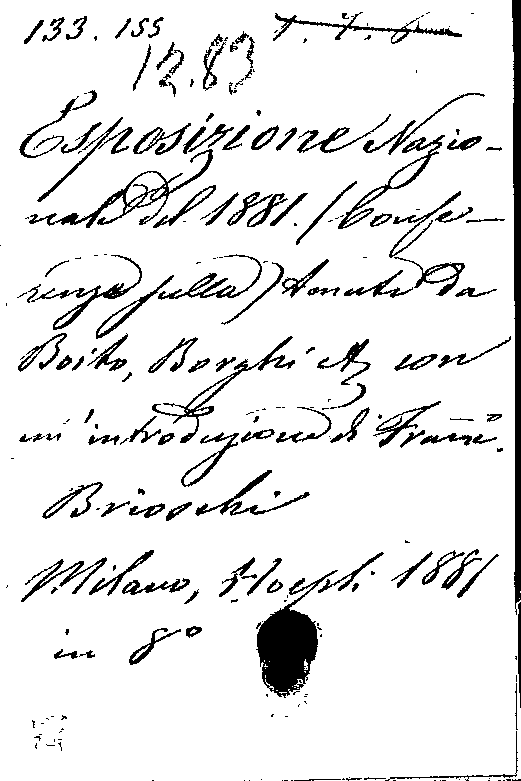 133. 155
12.83
Esposizione Nazio-
nale del 1881. (Confe-
renze sulla) tenute da
Boito, Borghi &c con
un' introduzione di Franc.
Brioschi
Milano, Hoepli 1881
in 8º